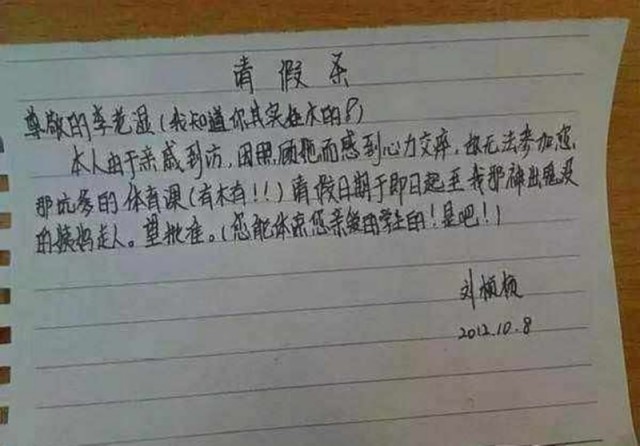 请假条
尊敬的李老湿(我知道你其实在木的?)
本人由于亲戚到访,因照顾她而感到心力交瘁,故无法参加您
那坑爹的体育课(有木有!!)请假日期于即日起至我那神出鬼没
的姨妈走人。望批准。(您能体谅您亲爱的学生的!是吧!)
刘
2012.10.8